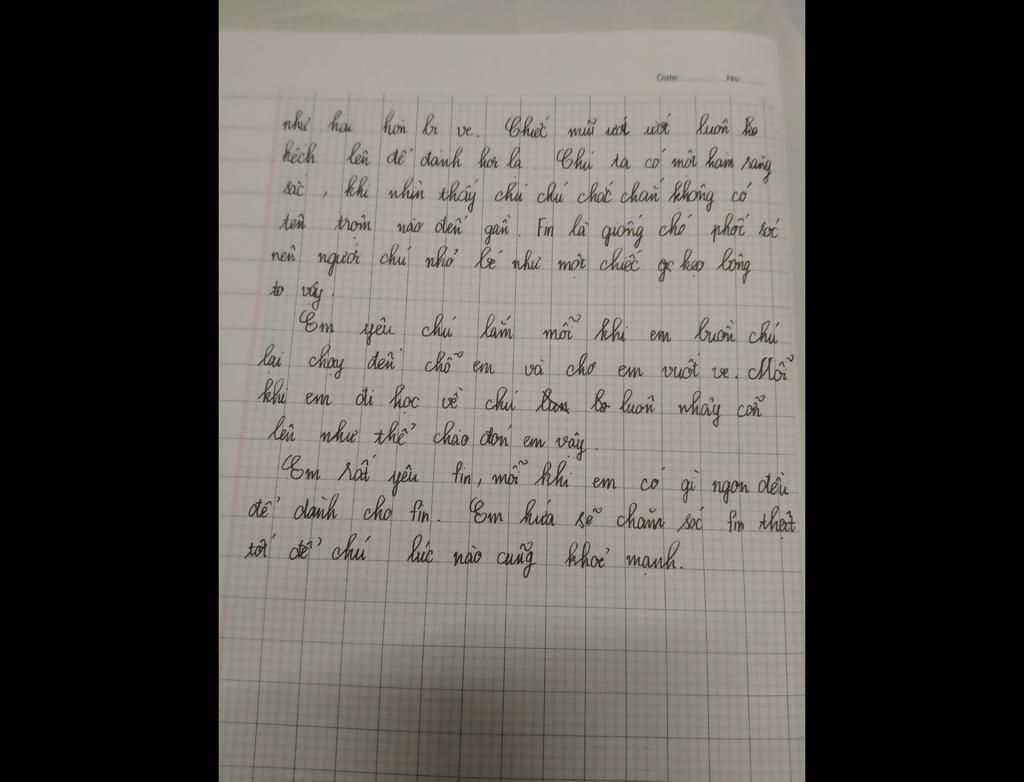 Date No
như hai hòn bi ve. Chiếc mũi ươt ướt luôn
hếch lên để đánh hơi lạ Chú ta có một hàm răng
sắc, khi nhìn thấy chú chú chắc chắn không có
tên trộm nào đến gần. Fin là giống chó phốc sóc
nên người chú nhỏ bé như một chiếc kẹo bông
to vậy.
Em yêu chú lắm mỗi khi em buồn chú
lại chạy đến chỗ em và cho em vuốt ve. Mỗi
khi em đi học về chú luôn nhảy cẫn
lên như thể chào đón em vậy.
Em rất yêu fin, mỗi khi em có gì ngon đều
để dành cho fin. Em hứa sẽ chăm sóc fin thật
tốt để chú lúc nào cũng khoẻ mạnh.